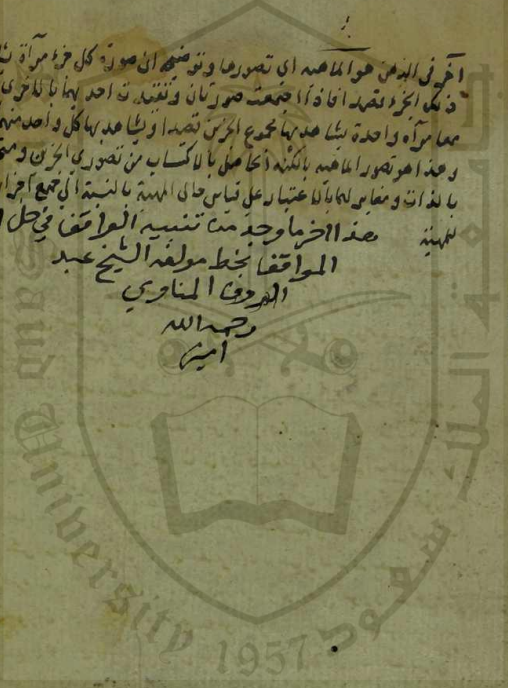 آخر في الذهن هو الماهية اي تصورها وتوضيحه ان صورة كل جزء مرآة
ذلك الجزء قصدا فاذا اجتمعت صورتان وتقيدت احديهما بالاخرى
معا مرآة واحدة يشاهد بهما مجموع الجزئين قصدا ويشاهد بها كل واحد منهما
وهذا هو تصور الماهية بالكنه الحاصل بالاكتساب من تصوري الجزئين
بالذات ومغاير لهما بالاعتبار على قياس حال المهية بالنسبة الى جميع اجزا
للمهية هذا اخر ما وجد من تنبيه الواقف في حل
المواقف بخط مولفه الشيخ عبد
الرووف المناوي
رحمه الله
امين
جامعة الملك سعود
King Saud University 1957